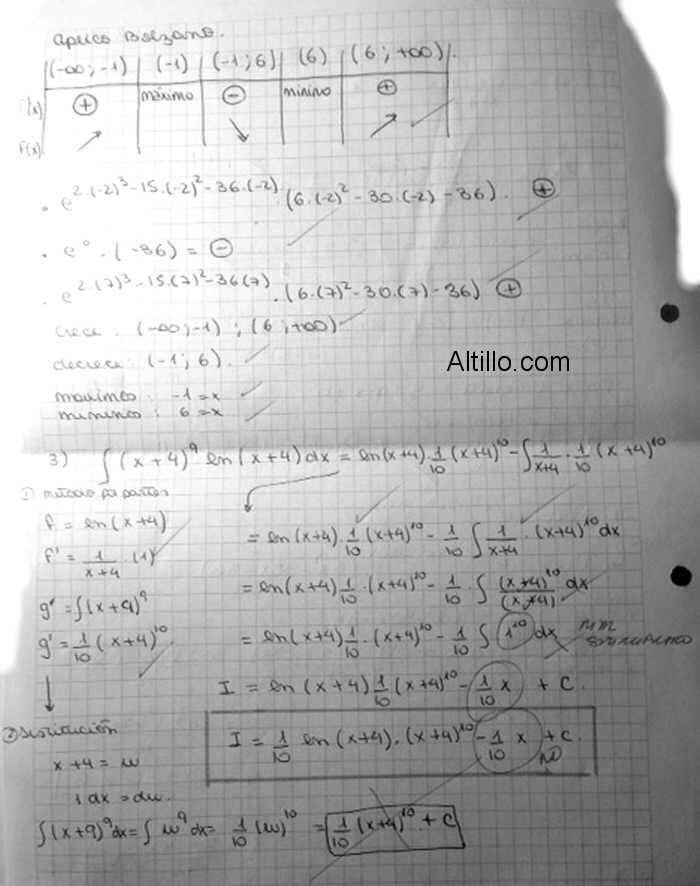 aplico Bolzano.
(-∞; -1) | (-1) | (-1; 6) | (6) | (6; +∞)
f'(x) | ⊕ | máximo | ⊖ | mínimo | ⊕
f(x) ↗ ↘ ↗
· e^{2·(-2)^3-15·(-2)^2-36·(-2)}·(6·(-2)^2-30·(-2)-36). ⊕
· e^0·(-36) = ⊖
· e^{2·(7)^3-15·(7)^2-36(7)}·(6·(7)^2-30·(7)-36) ⊕
crece: (-∞; -1); (6; +∞)
decrece: (-1; 6).
Altillo.com
máximos: -1=x
mínimos: 6=x
3) ∫(x+4)^9 ln(x+4)dx = ln(x+4)·1/10(x+4)^10 - ∫1/(x+4)·1/10(x+4)^10
① método por partes
f = ln(x+4)
f' = 1/(x+4)·(1)
g' = ∫(x+4)^9
g' = 1/10(x+4)^10
= ln(x+4)·1/10(x+4)^10 - 1/10∫1/(x+4)·(x+4)^10dx
= ln(x+4)1/10·(x+4)^10 - 1/10·∫(x+4)^10/(x+4)dx
= ln(x+4)1/10·(x+4)^10 - 1/10∫1^10dx
I = ln(x+4)1/10(x+4)^10 - 1/10x + C
I = 1/10 ln(x+4)·(x+4)^10 - 1/10x + C
NO
② sustitución
x+4 = u
1dx = du.
∫(x+9)^9dx = ∫u^9du = 1/10(u)^10 = 1/10(x+4)^10 + C